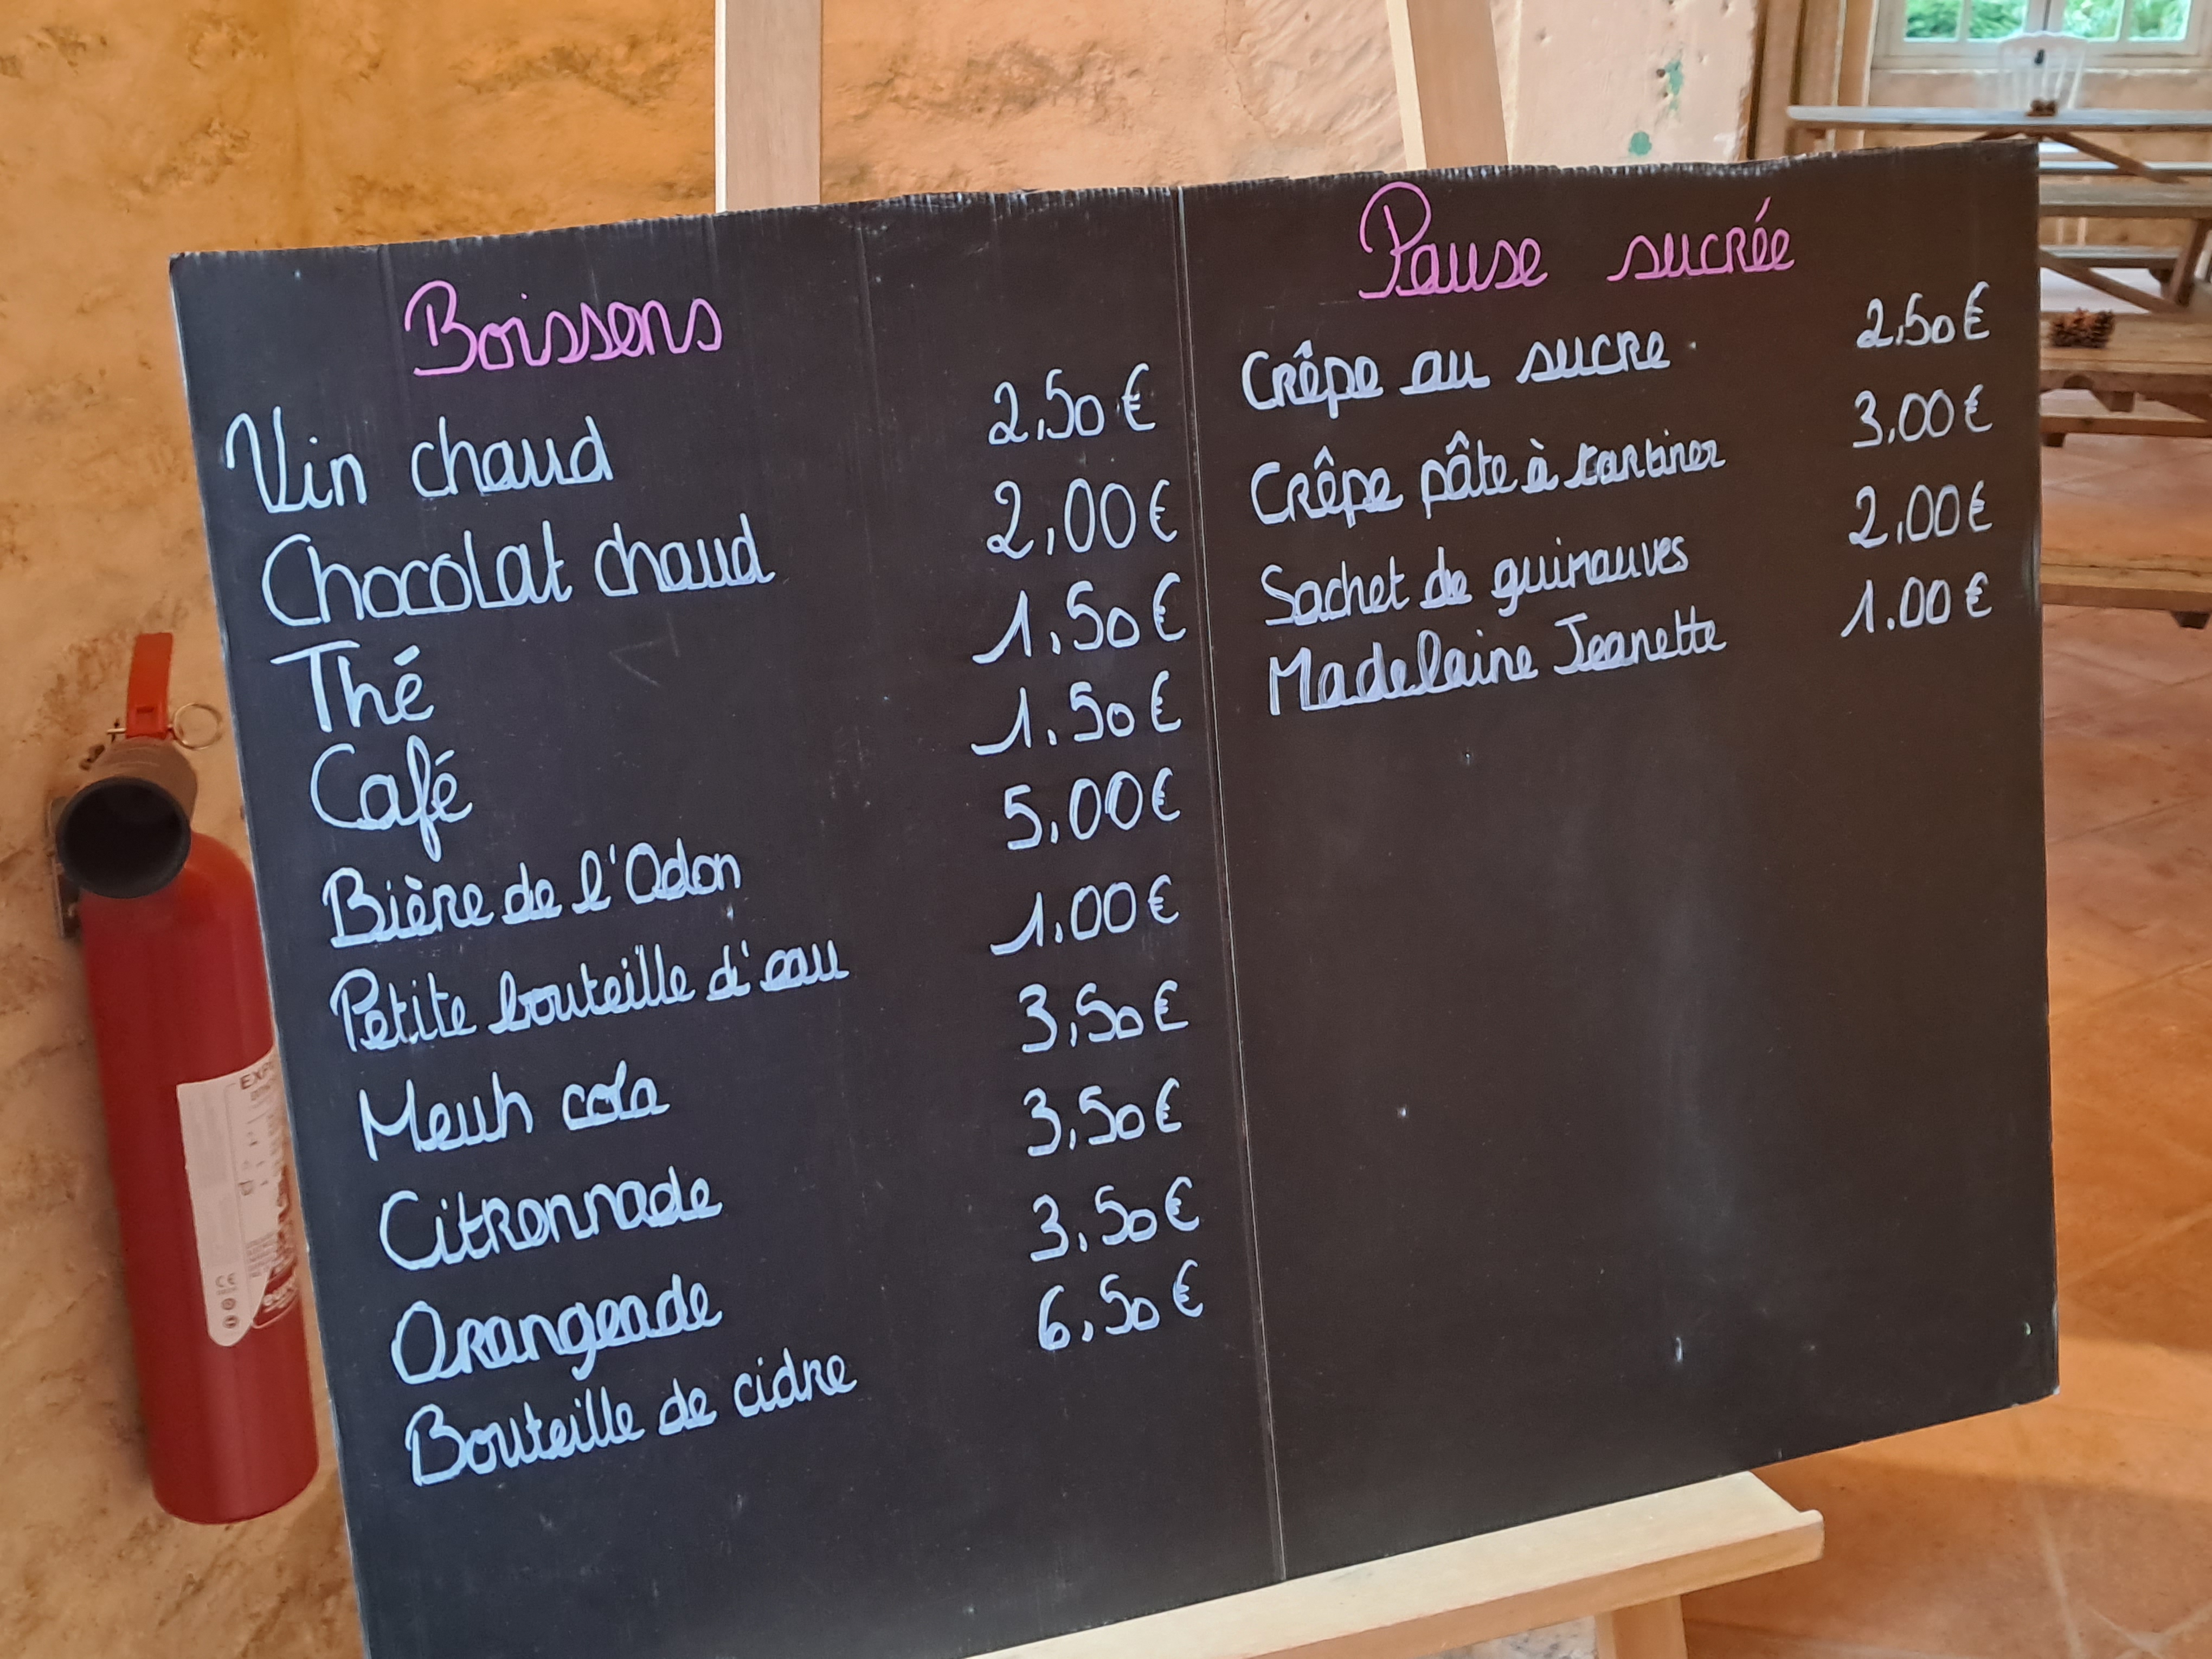 Boissons
Vin chaud 2,50 €
Chocolat chaud 2,00 €
Thé 1,50 €
Café 1.50 €
Bière de l'Odon 5,00 €
Petite bouteille d'eau 1.00 €
Meuh cola 3,50 €
Citronnade 3,50 €
Orangeade 3,50 €
Bouteille de cidre 6,50 €
Pause sucrée
Crêpe au sucre 2,50 €
Crêpe pâte à tartiner 3,00 €
Sachet de guimauves 2,00 €
Madelaine Jeanette 1.00 €
CE